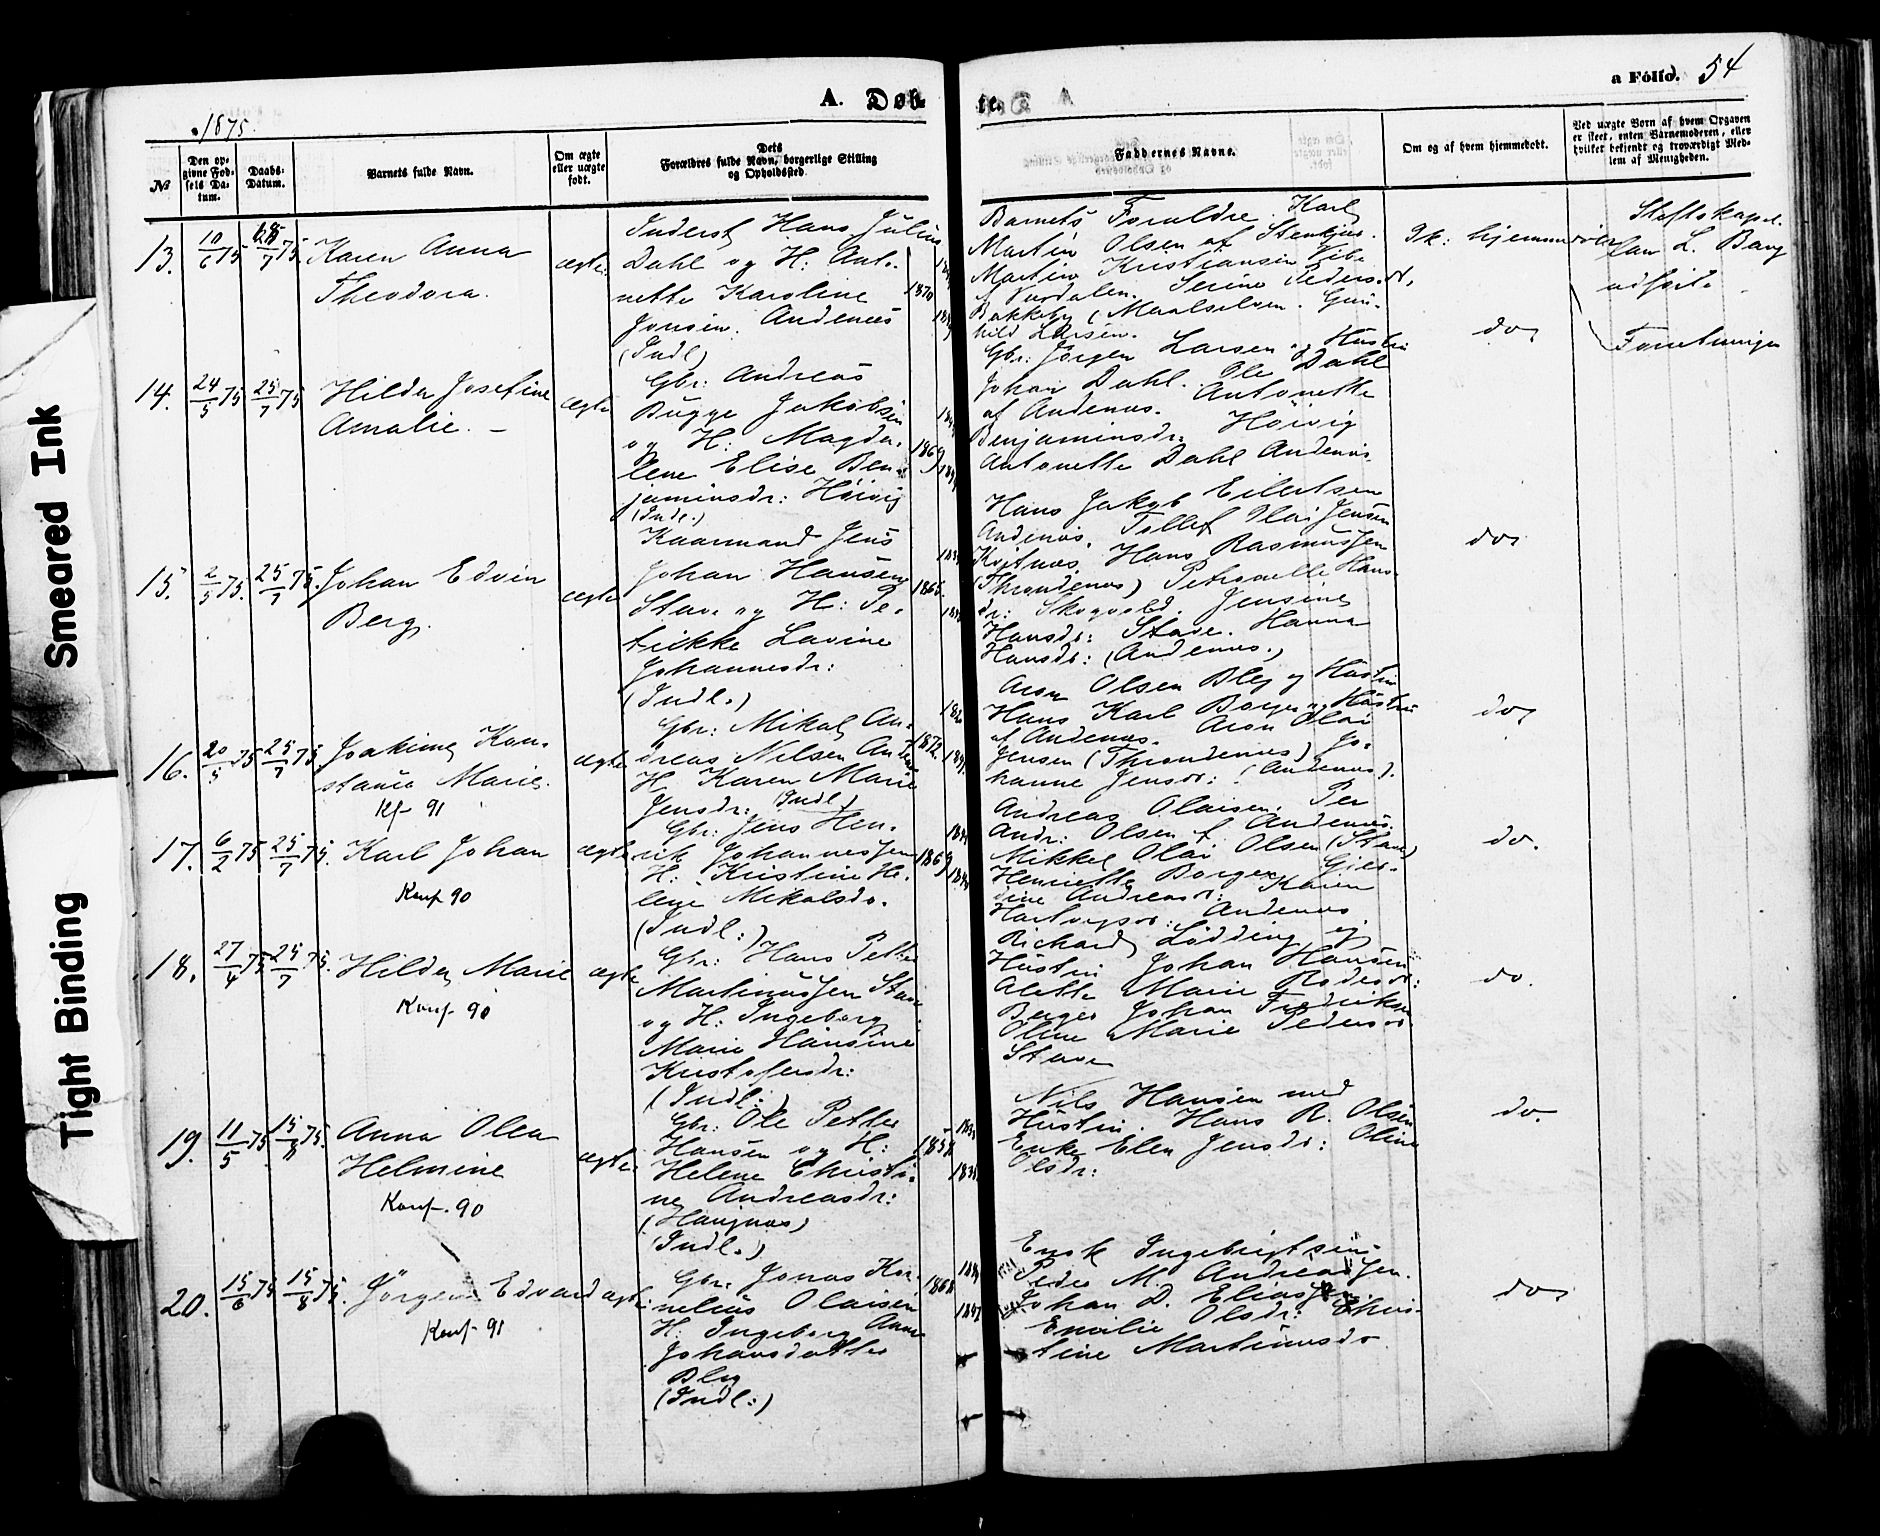 A. Døb-
te.
a Folio. 54
1875.
No
Den op-
givne Fød-
sels Da-
tum.
Daabs-
Datum.
Barnets fulde Navn.
Om ægte
eller uægte
født.
Dets
Forældres fulde Navn, borgerlige Stilling
og Opholdssted.
Faddernes Navne.
Om og af hvem hjemmedøbt.
Ved uægte Børn af hvem Opgaven
er skeet, enten Barnemoderen, eller
hvilket bekjendt og troværdigt Med-
lem af Menigheden.
13. 10/6 75 25/7 75 Karen Anna
Theodora.
ægte
Inderst Hans Julius
Dahl og H: Anto-
nette Karoline
Jensen. Andenæs
(Indl)
1870
Barnets Forældre. Karl
Martin Olsen af Stenkjær.
Martin Kristiansen Vibe
af Værdalen. Serine Pedersdt,
Bakkeby (Maalselven. Gun-
hild Larsen.
Ik: hjemmedøbt
Stiftskapel-
lan L. Bang
14. 24/5 75 25/7 75 Hilda Josefine
Amalie. –
ægte
Gbr: Andreas
Bugge Jakobsen
og H: Magda-
lene Elise Ben-
jaminsdr: Höivig
(Indl.)
1869
Gbr: Jørgen Larsen og Hustru
Johan Dahl. Ole Dahl
af Andenæs. Antonette
Benjaminsdr: Höivig
Antonette Dahl Andenæs.
do,
Forretninger
15. 2/5 75. 25/7 75. Johan Edvin
Berg.
ægte
Kaarmand Jens
Johan Hansen
Stave og H: Pe-
rikke Lavine
Johannesdr:
(Indl.)
1865.
Hans Jakob Eilertsen
Andenæs. Tollef Olai Jensen
Kvitnæs. Hans Rasmussen
(Throndenæs) Petronelle Hans-
dr: Skogvold. Jensine
Hansdr: Stave. Hanna
Hansdr: (Andenæs.)
do,
16. 20/5 75 25/7 75. Joakime Kon-
stanse Marie.
Kf- 91
ægte
Gbr: Mikal An-
dreas Nilsen Andenæs
H. Karen Marie
Jensdr: (Indl)
1872.
Aron Olsen Bleg og Hustru
Hans Karl Borgen og Hustru
af Andenæs. Aron Olai
Jensen (Throndenæs) Jo-
hanne Jensdr: (Andenæs).
do,
17. 6/2 75 25/7 75. Karl Johan
Konf- 90
ægte
Gbr: Jens Hen-
rik Johannessen
H. Kristine He-
lene Mikalsdr.
(Indl:)
1869
Andreas Olaisen. Per
Andr: Olsen af Andenæs.
Mikkel Olai Olsen (Stave)
Henriette Borgen Gjer-
dine Andreasdr: Karen
Hartvigsdr: Andenæs
do.
18. 27/4 75 25/7 75. Hilda Marie
Konf- 90
ægte
Gbr: Hans Petter
Martinussen Stave
og H: Ingeborg
Marie Hansine
Kristofersdr:
(Indl:)
Richard Lødding og
Hustru Johan Hansen
Alette Marie Rodesdr:
Berger Johan Fredriksen
Oline Marie Pedersdr
Stave
do.
19. 11/5 75. 15/8 75. Anna Olea
Helmine
Konf- 90
ægte
Gbr: Ole Petter
Hansen og H:
Helene Christi-
ne Andreasdr:
(Haugnæs)
(Indl.)
1858
Nils Hansen med
Hustru. Hans R. Olsen
Enke Elen Jensdr: Oline
Olsdr:
do.
20. 15/6 75 15/8 75. Jörgen Edvard
Konf- 91
ægte
Gbr. Jonas Kor-
nelius Olaisen
H: Ingeborg Anna
Johansdatter
Bleg
(Indl:)
1868
Enok Ingebrigtsen
Peder M. Andreassen.
Johan D. Eliassen
Emilie Olsdr: Chris-
tine Martinusdr
do,
Smeared Ink
Tight Binding